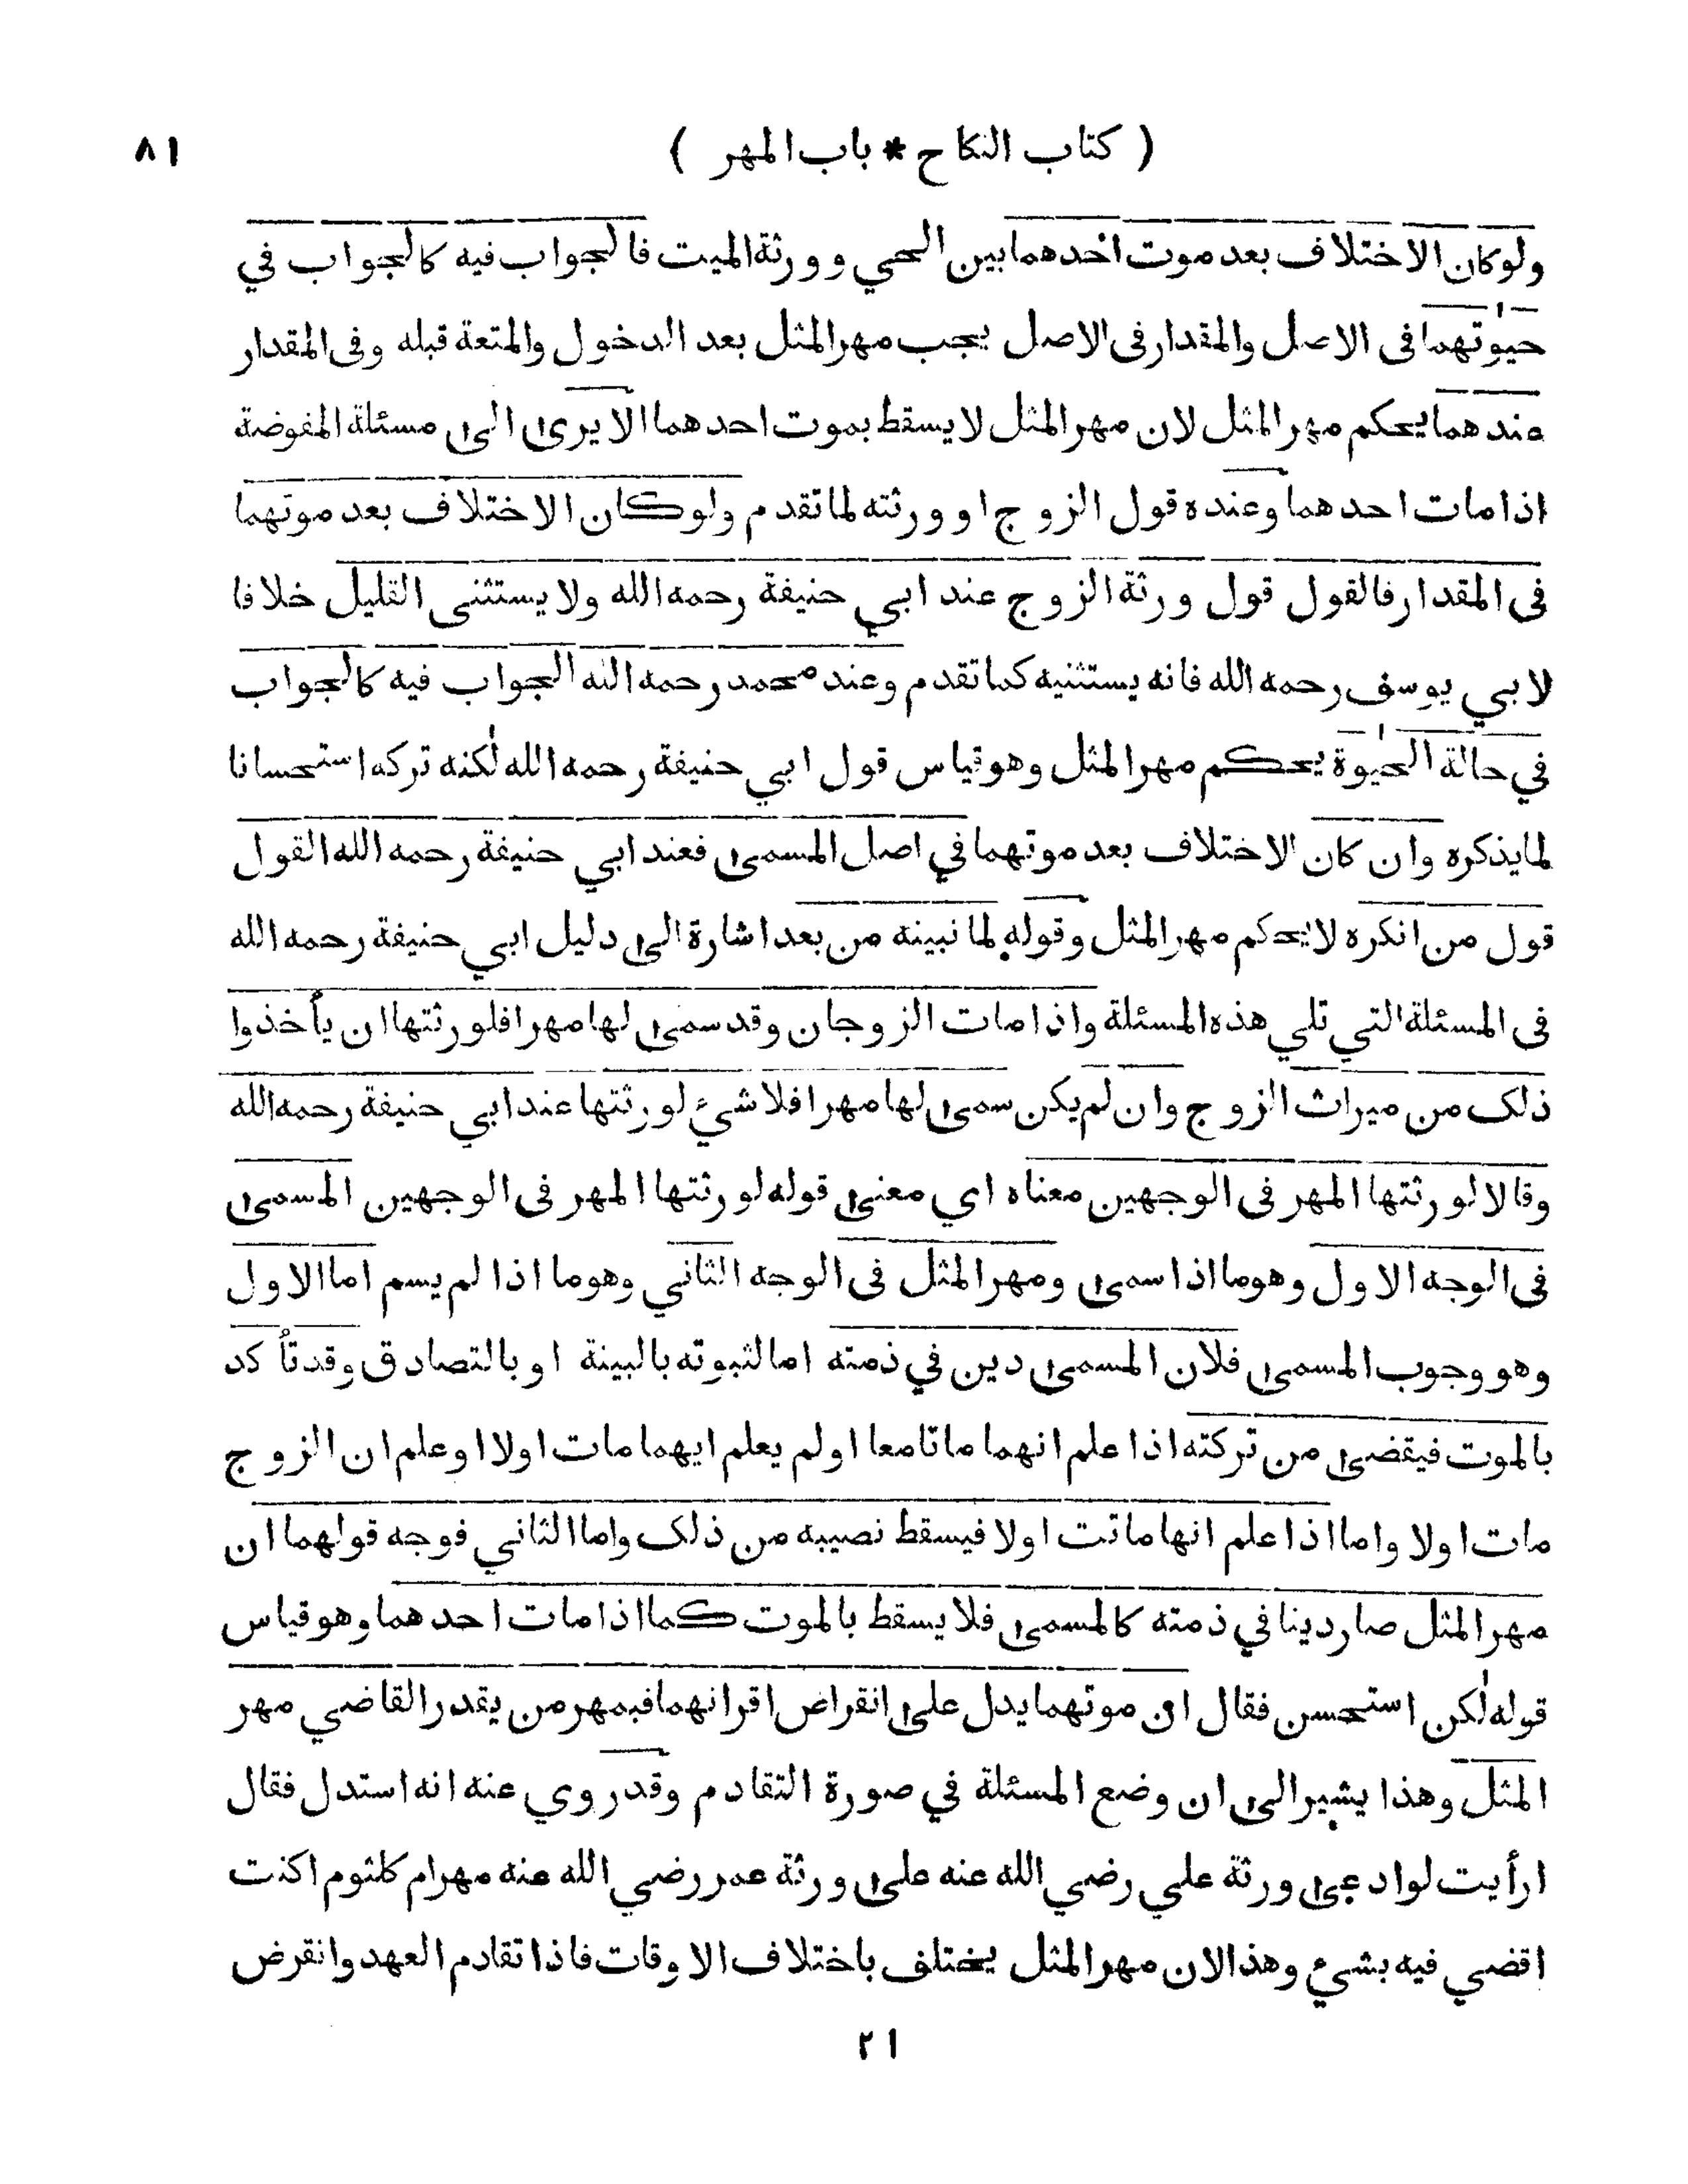 ( كتاب النكاح * باب المهر ) ٨١
ولو كان الاختلاف بعد موت احدهما بين الحي وورثة الميت فالجواب فيه كالجواب في
حيٰوتهما في الاصل والمقدار في الاصل يجب مهر المثل بعد الدخول والمتعة قبله وفي المقدار
عندهما يحكم مهر المثل لان مهر المثل لا يسقط بموت احدهما الا يرى الى مسئلة المفوضة
اذا مات احدهما وعنده قول الزوج او ورثته لما تقدم ولو كان الاختلاف بعد موتهما
في المقدار فالقول قول ورثة الزوج عند ابي حنيفة رحمه الله ولا يستثنى القليل خلافا
لابي يوسف رحمه الله فانه يستثنيه كما تقدم وعند محمد رحمه الله الجواب فيه كالجواب
في حالة الحيٰوة يحكم مهر المثل وهو قياس قول ابي حنيفة رحمه الله لٰكنه تركه استحسانا
لما يذكره وان كان الاختلاف بعد موتهما في اصل المسمى فعند ابي حنيفة رحمه الله القول
قول من انكره لا يحكم مهر المثل وقوله لما نبينه من بعد اشارة الى دليل ابي حنيفة رحمه الله
في المسئلة التي تلي هذه المسئلة واذا مات الزوجان وقد سمى لها مهرا فلورثتها ان يأخذوا
ذلك من ميراث الزوج وان لم يكن سمى لها مهرا فلا شيء لورثتها عند ابي حنيفة رحمه الله
وقالا لورثتها المهر في الوجهين معناه اي معنى قوله لورثتها المهر في الوجهين المسمى
في الوجه الاول وهو ما اذا سمى ومهر المثل في الوجه الثاني وهو ما اذا لم يسم اما الاول
وهو وجوب المسمى فلان المسمى دين في ذمته اما لثبوته بالبينة او بالتصادق وقد تأكد
بالموت فيقضى من تركته اذا علم انهما ماتا معا او لم يعلم ايهما مات اولا او علم ان الزوج
مات اولا واما اذا علم انها ماتت اولا فيسقط نصيبه من ذلك واما الثاني فوجه قولهما ان
مهر المثل صار دينا في ذمته كالمسمى فلا يسقط بالموت كما اذا مات احدهما وهو قياس
قوله لٰكن استحسن فقال ان موتهما يدل على انقراض اقرانهما فبمهر من يقدر القاضي مهر
المثل وهذا يشير الى ان وضع المسئلة في صورة التقادم وقد روي عنه انه استدل فقال
ارأيت لو ادعى ورثة علي رضي الله عنه على ورثة عمر رضي الله عنه مهر ام كلثوم اكنت
اقضي فيه بشيء وهذا لان مهر المثل يختلف باختلاف الاوقات فاذا تقادم العهد وانقرض
٢١